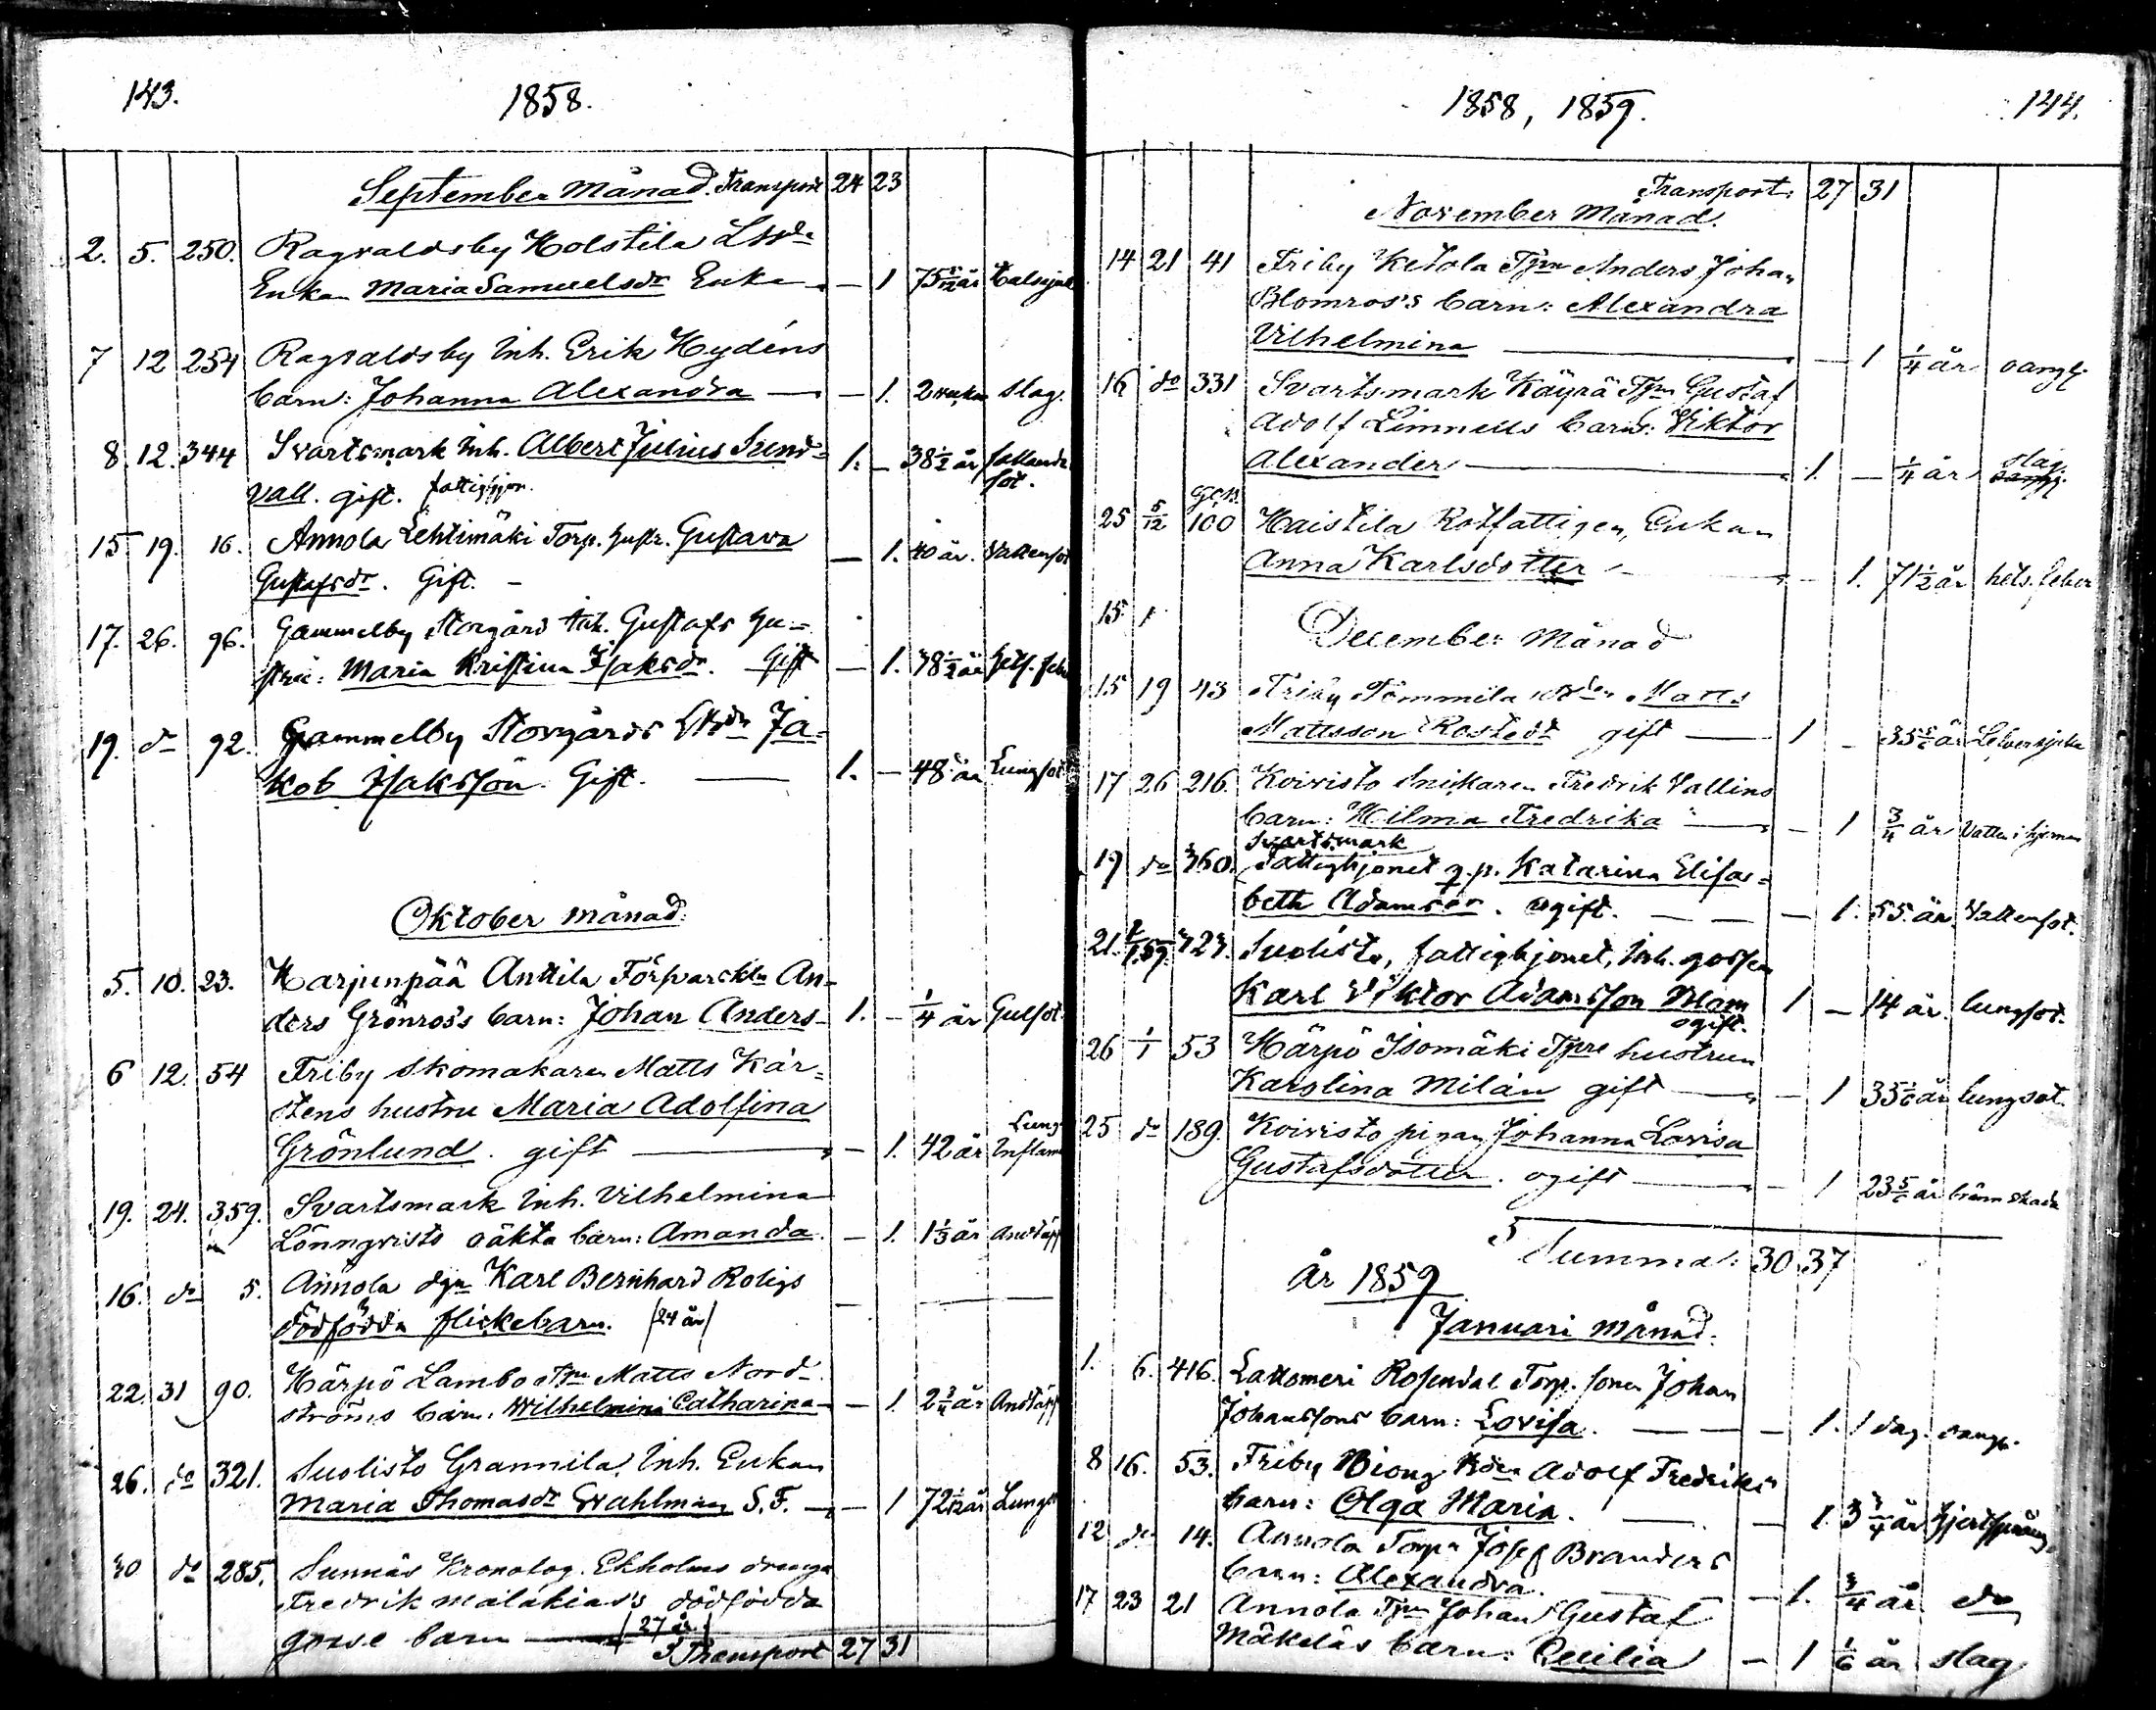 143.
1858.
September Månad. Transport 24 23
2. 5. 250. Ragvaldsby Holstila
Enkan Maria Samuelsdr Enka — 1 75 år
7 12 254 Ragvaldsby Inh. Erik Hydéns
barn: Johanna Alexandra — — 1. 2 veckor slag.
8. 12. 344 Svartsmark Inh. Albert Julius Sund= 1. — 38 1/2 år fallande
vall. gift. fattighjon. sot.
15 19. 16. Annola Lehtimäki Torp. hustr. Gustava — 1. 40 år. Vattensot
Gustafsdr. Gift. —
17. 26. 96. Gammelby Storgård Inh. Gustafs hu=
stru: Maria Kristina Isaksdr. Gift — 1. 38 1/2 år
19. do 92. Gammelby Storgårds Ja=
kob Isaksson. Gift. — 1. — 48 år Lungsot
Oktober månad.
5. 10. 23. Harjunpää Anttila An-
ders Grönros's barn: Johan Anders — 1. — 1/4 år Gulsot.
6 12. 54 Friby Skomakaren Matts Kär=
stens hustru Maria Adolfina Lung
Grönlund. gift — — 1. 42 år Inflam
19. 24. 359. Svartsmark Inh. Vilhelmina
Lönnqvists oäkta barn: Amanda. — 1. 1 1/3 år Andtäpp
16. do 5. Annola dgn Karl Bernhard Roligs
dödfödda flickebarn. (24 år) —
22. 31 90. Härpö Lambo Matts Nord-
ströms barn: Wilhelmina Catharina — — 1 2 3/4 år Andtäpp
26. do 321. Suolisto Grannila, Inh. Enkan
Maria Thomasdr Wahlman S. F. — — 1 72 1/12 år Lungsot
30 do 285. Sunnäs Kronolog. Ekholms drengs
Fredrik Malakias's dödfödda
gosse barn — (27 år.)
Transport 27 31
1858, 1859.
144.
Transport: 27 31
November Månad.
14 21 41 Friby Ketola Tprn Anders Johan
Blomros's barn: Alexandra
Vilhelmina — — 1 1/4 år oangf.
16 do 331 Svartsmark Käyrä Tprn Gustaf
Adolf Limnells barn: Viktor
Alexander — 1. — 1/4 år slag.
25 5/12 100 Haistila Rotfattigen, Enkan
Anna Karlsdotter — — 1. 71 1/2 år hets. feber
15 1
December Månad
15 19 43 Friby Tommila Matts
Mattsson Rostedt gift — 1 — 35 år
17 26 216. Koivisto Snickaren Fredrik Vallins
barn: Hilma Fredrika — — 1 3/4 år Vatten i hjernan
Svartsmark
19 do 360. Fattighjonet q.p. Katarina Elisa=
beth Adamsdr. ogift. — — 1. 55. år. Vattensot.
21. 323. Suolisto, fattighjonet, Inh. gossen
Karl Viktor Adamsson Blom 1 — 14 år. lungsot.
ogift.
26 1/1 53 Härpö Isomäki Tpre hustrun
Karolina Milán gift — — 1 33 år lungsot.
25 do 189. Koivisto pigan Johanna Lovisa
Gustafsdotter. ogift — — 1 23 år bränskada
Summa: 30. 37
År 1859
Januari månad.
1. 6. 416. Lattomeri Rosendal Torp. sonen Johan
Johanssons barn: Lovisa. — — 1. 1 dag. oangf.
8 16. 53. Friby Adolf Fredriks
barn: Olga Maria. — — 1. 3 3/4 år
12 do 14. Annola Torpn Josef Branders
barn: Alexandra. — — 1. 3/4 år do
17 23 21 Annola Tprn Johan Gustaf
Mäkeläs barn: Cecilia — 1 1/6 år slag